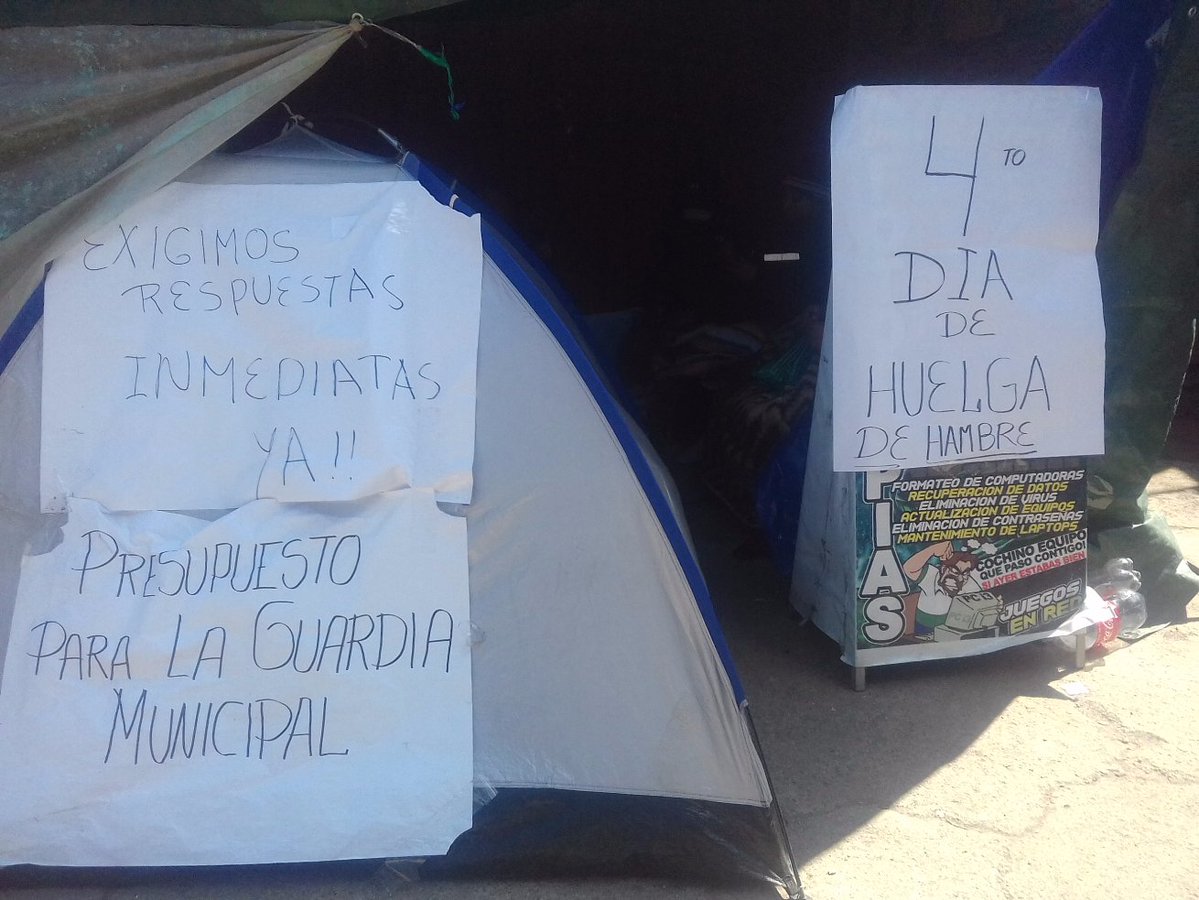 EXIGIMOS
RESPUESTAS
INMEDIATAS
YA!!
PRESUPUESTO
PARA LA GUARDIA
MUNICIPAL
4TO
DIA
DE
HUELGA
DE HAMBRE
PIAS
FORMATEO DE COMPUTADORAS
RECUPERACION DE DATOS
ELIMINACION DE VIRUS
ACTUALIZACION DE EQUIPOS
ELIMINACION DE CONTRASEÑAS
MANTENIMIENTO DE LAPTOPS
COCHINO EQUIPO
QUE PASO CONTIGO!
SI AYER ESTABAS BIEN
JUEGOS
EN RED